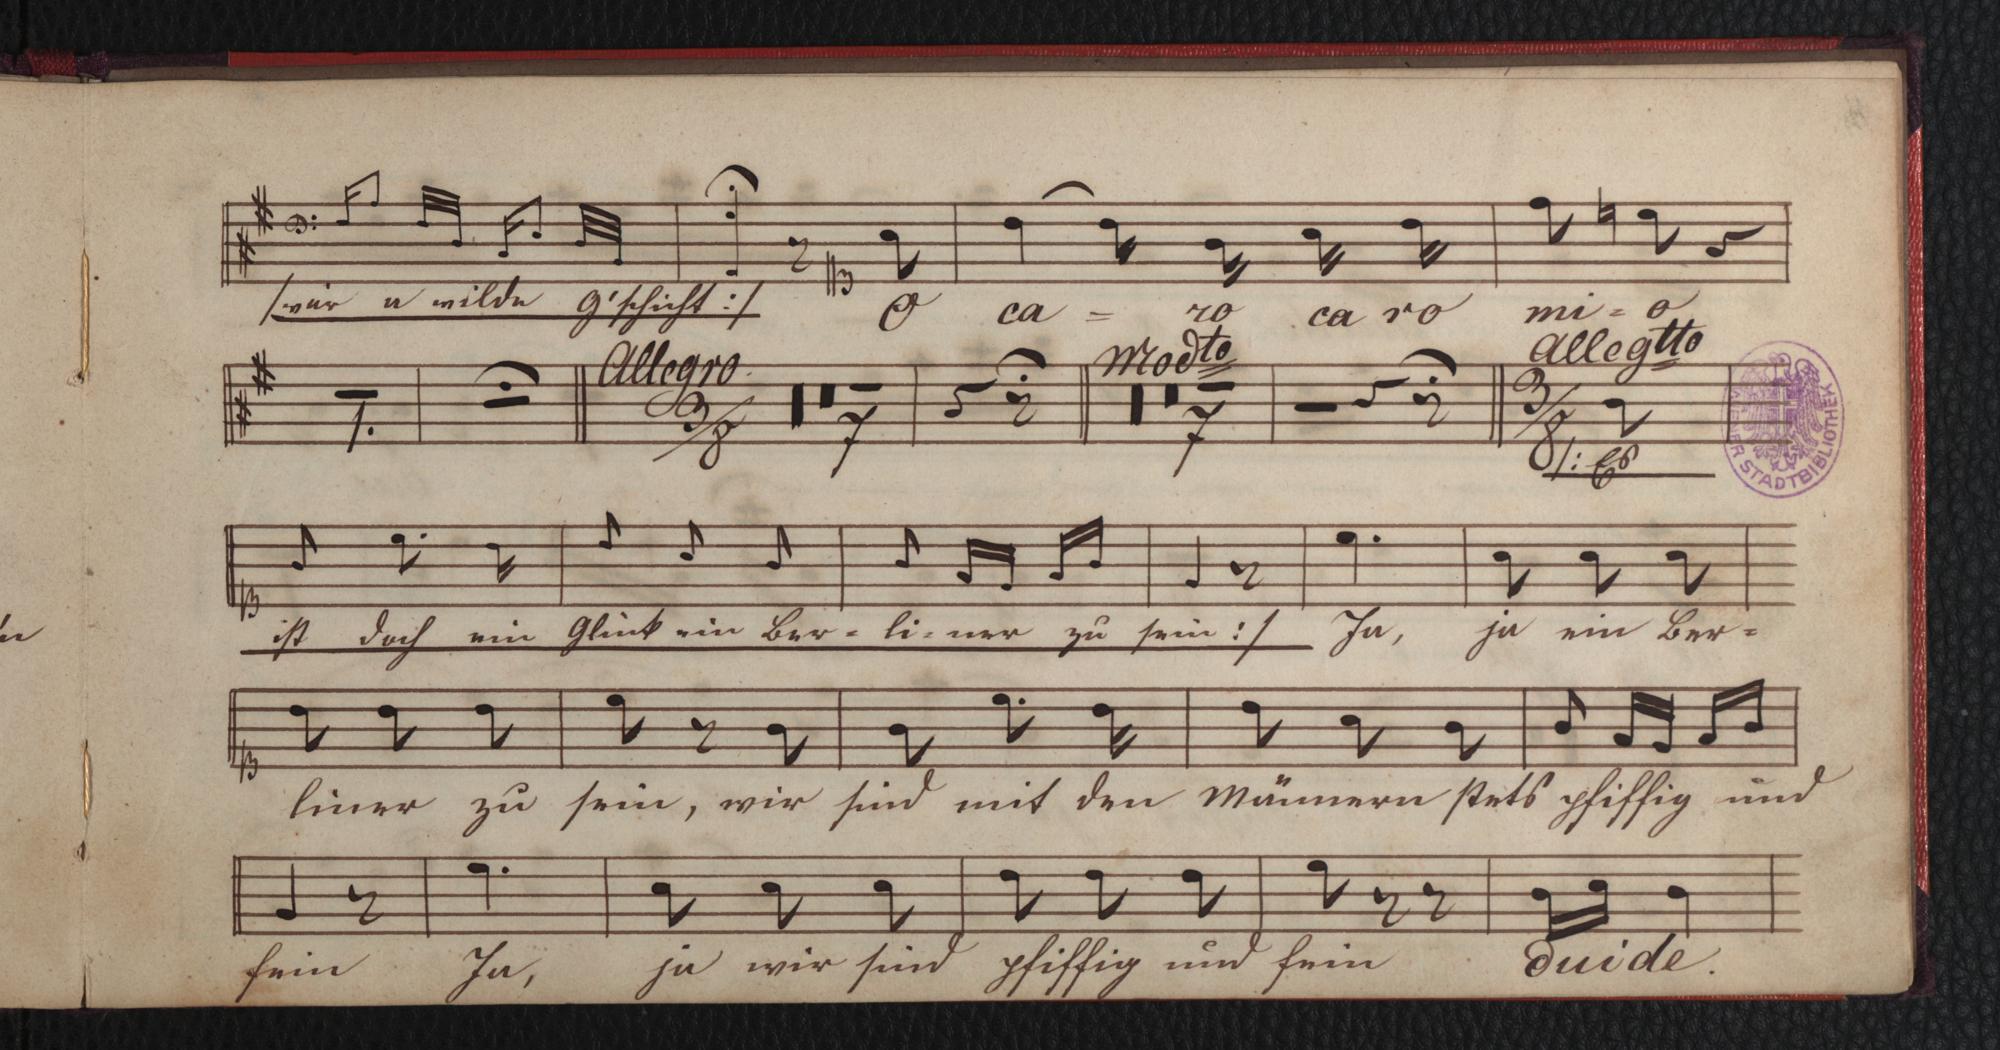 /: wär a wilde G'schicht :/ O ca = ro ca ro mi = o
Allegro. Modto Allegtto
3/8 7 7 3/8
1. /: Es
WIENER STADTBIBLIOTHEK
ist doch ein Glück ein Ber = li = ner zu sein :/ Ja, ja ein Ber =
liner zu sein, wir sind mit den Männern stets pfiffig und
fein Ja, ja wir sind pfiffig und fein duide.